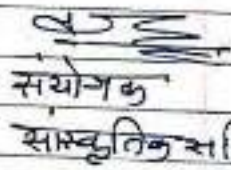 संयोजक
सांस्कृतिक स